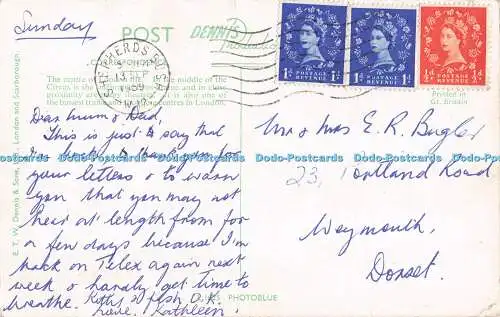 Sunday
POST
DENNIS
Productions
SHEPHERDS BUSH
13 SEP
1959
W.12
POSTAGE
REVENUE
1D
POSTAGE
REVENUE
1D
POSTAGE
REVENUE
½D
Printed in
Gt. Britain
LONDON
middle of the
Circus is
is one of the
busiest centres in London.
Dear Mum & Dad,
This is just to say that
I'm back, & thank you for
your letters & to warn
you that you may not
hear at length from for
a few days because I'm
back on Telex again next
week & hardly get time to
breathe. Kitty & fish O.K.
Love, Kathleen.
PHOTOBLUE
E. T. W. Dennis & Sons, London and Scarborough.
Mr & Mrs E. R. Bugler
23, Portland Road
Weymouth,
Dorset.
Dodo-Postcards Dodo-Postcards Dodo-Postcards Dodo-Postcards Dodo-Postcards Dodo-Postcards